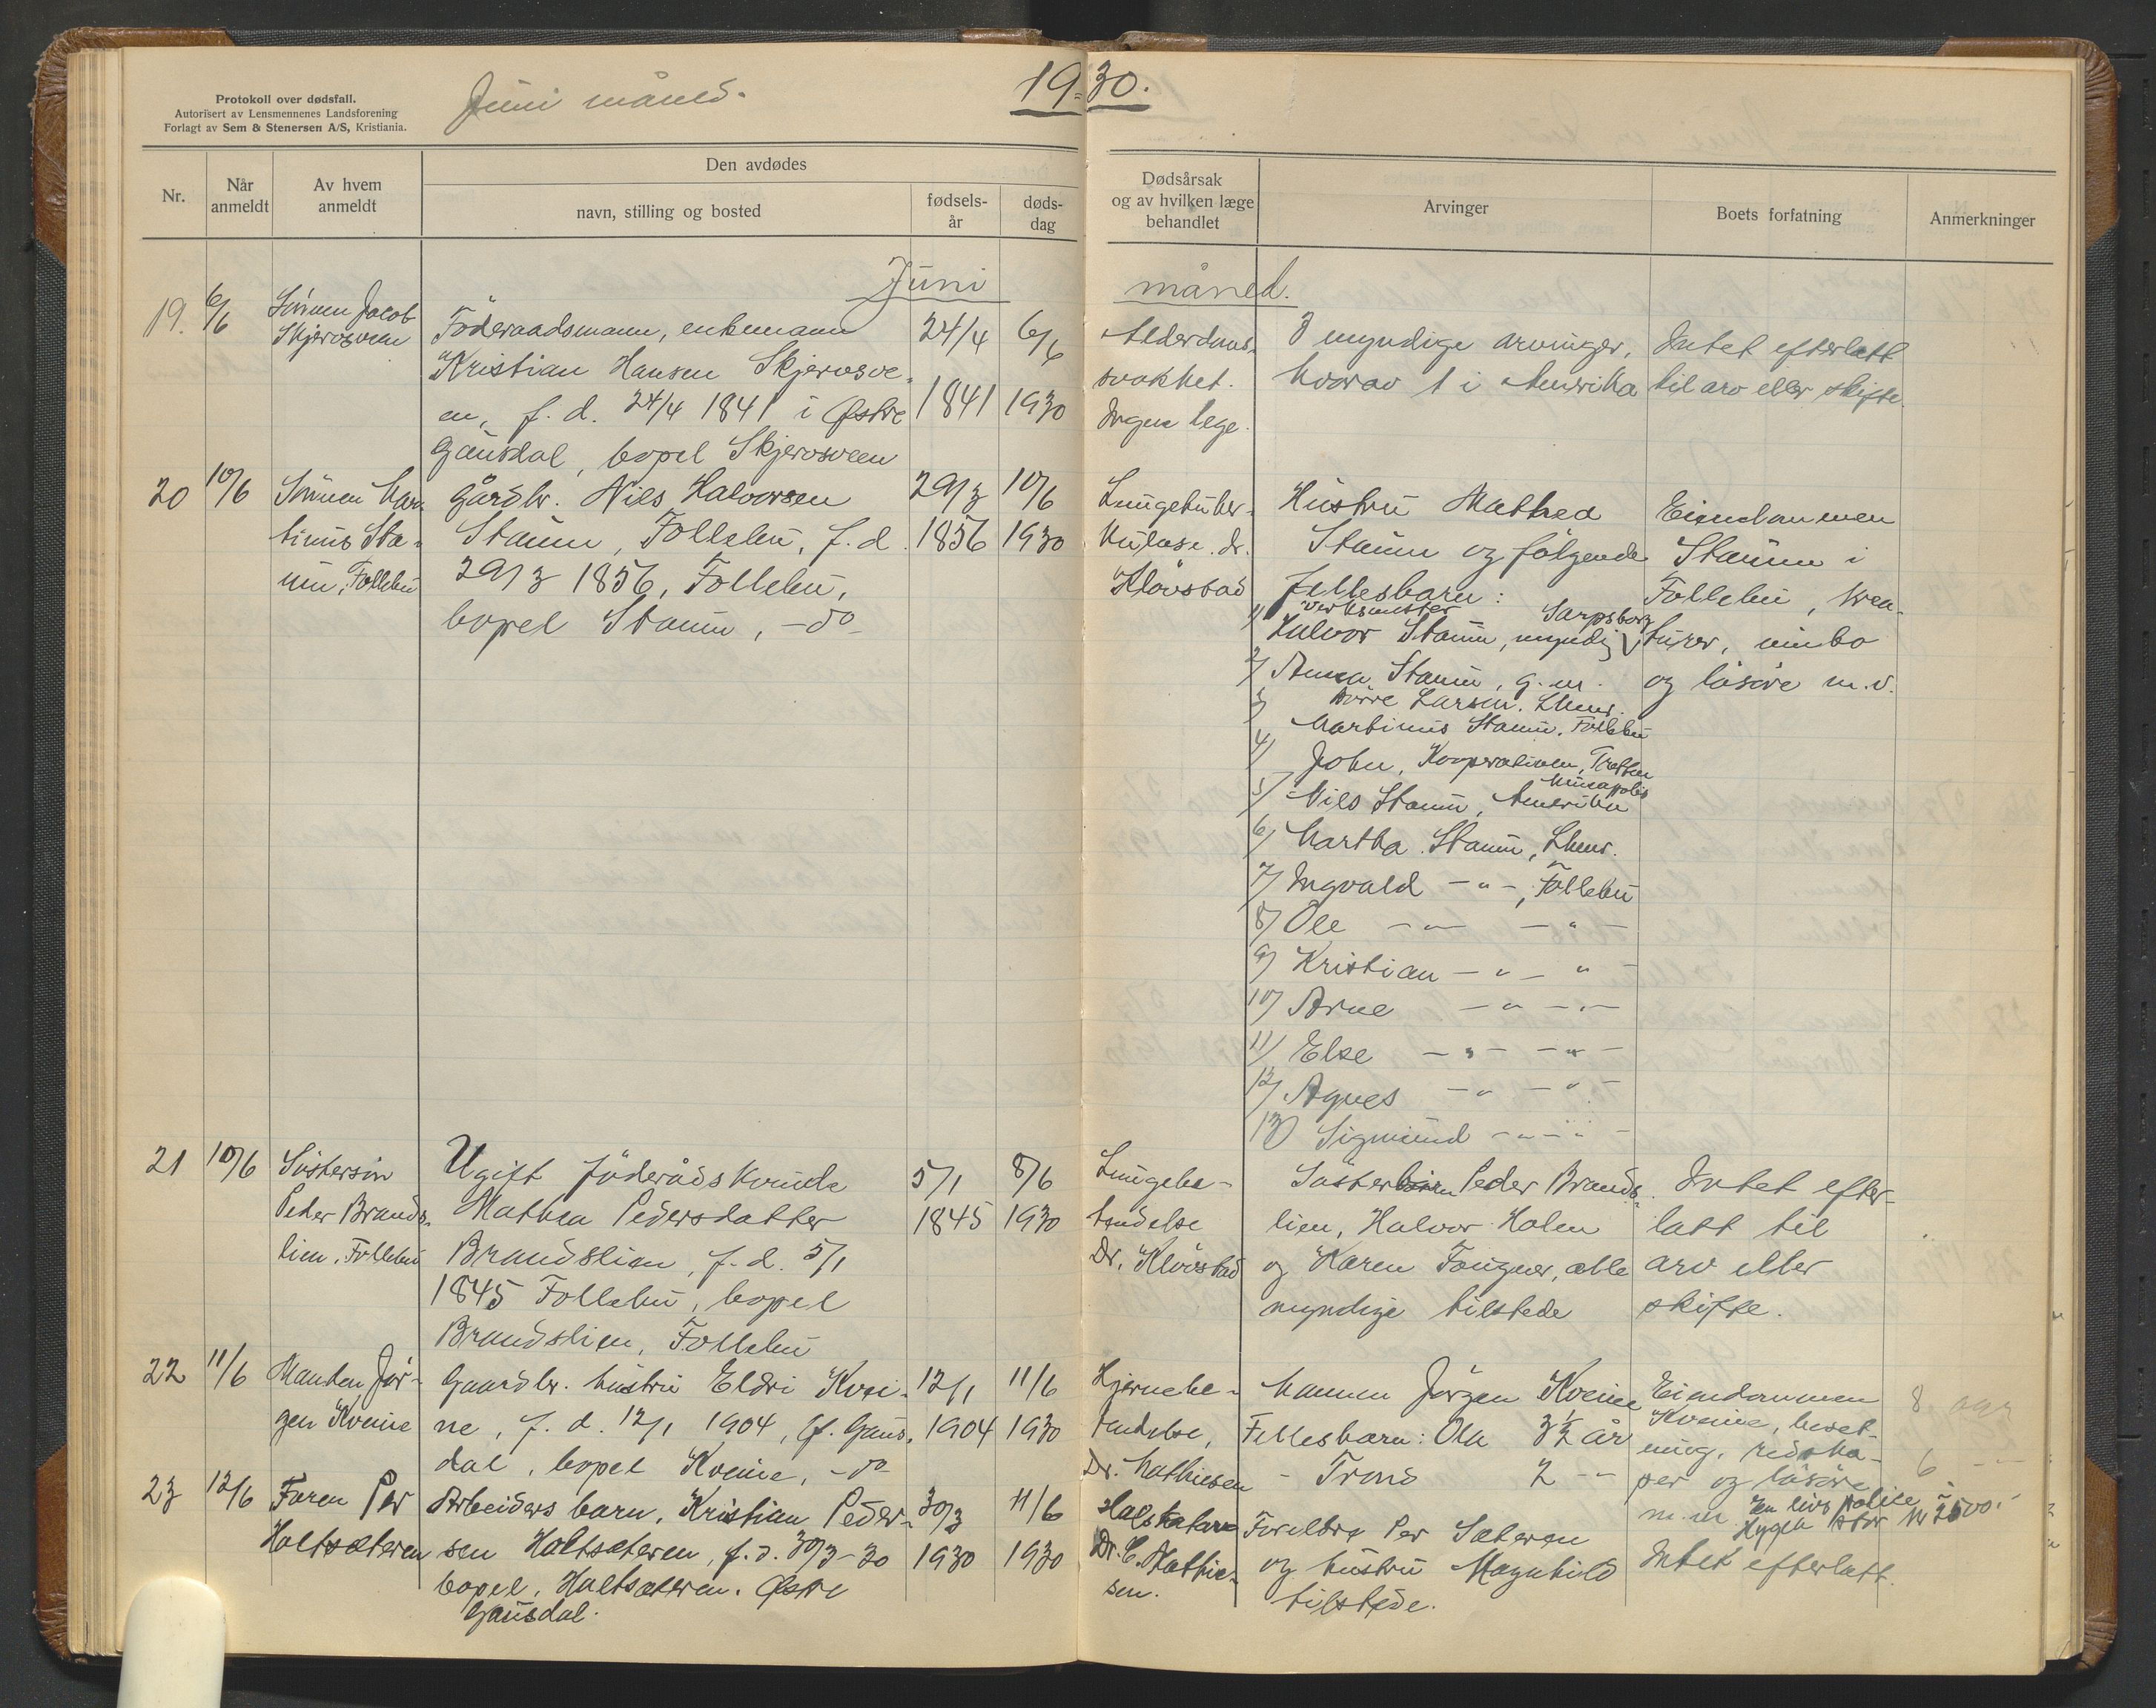 Protokoll over dødsfall.
Autorisert av Lensmennenes Landsforening
Forlagt av Sem & Stenersen A/S, Kristiania.
Juni måned.
19-30.
Nr.
Når anmeldt
Av hvem anmeldt
Den avdødes
navn, stilling og bosted
fødsels-år
døds-dag
Dødsårsak og av hvilken læge behandlet
Arvinger
Boets forfatning
Anmerkninger
Juni måned.
19. 6/6
Sönnen Jacob
Skjerosveen
Föderaadsmann, enkemann
Kristian Hansen Skjerosve-
en, f. d. 24/4 1841 i Østre
Gausdal, bopel Skjerosveen
24/4
1841
6/6
1930
Alderdoms-
svakhet.
Ingen lege.
8 myndige arvinger,
hvorav 1 i Amerika
Intet efterlatt
til arv eller skifte
20 10/6
Sönnen Mar-
tinus Sta-
um, Follebu
Gårdbr. Nils Halvorsen
Staum, Follebu, f. d.
29/3 1856, Follebu,
bopel Staum, -do-
29/3
1856
10/6
1930
Lungetuber-
kulose. dr.
Klövstad
Hustru Mathea
Staum og fölgende
fellesbarn:
verksmester Sarpsborg
1) Halvor Staum, myndig
2) Anna Staum, g. m.
Börre Larsen. Lhmr.
3) Martinus Staum. Follebu
4) John, Kooperativen, Tretten
Mineapolis
5) Nils Staum, Amerika
6) Martha Staum, Lhmr.
7) Ingvald - " -, Follebu
8) Ole - " - - " -
9) Kristian - " - " -
10) Arne - " - " -
11) Else - " - - " -
12) Agnes - " - " -
13) Sigmund - " - " -
Eiendommen
Staum i
Follebu, krea-
turer, innbo
og lösöre m.v.
21 10/6
Sösterson
Peder Brands-
lien, Follebu
Ugift föderådskvinde
Mathea Pedersdatter
Brandslien, f. d. 5/1
1845 Follebu, bopel
Brandslien, Follebu
5/1
1845
8/6
1930
Lungebe-
tendelse
Dr. Klövstad
Sösterbarn Peder Brands-
lien, Halvor Holen
og Karen Fougner, alle
myndige tilstede
Intet efter-
latt til
arv eller
skifte.
22 11/6
Manden Jör-
gen Kveine
Gaardbr. hustru Eldri Kvei-
ne, f. d. 12/1 1904, Ø. Gaus-
dal, bopel Kveine, -do-
12/1
1904
11/6
1930
Hjernebe-
tendelse,
Dr. Mathiesen
Mannen Jörgen Kveine
Fellesbarn: Ola 3½ år
- Trond 2 - "
Eiendommen
Kveine, beset-
ning, redska-
per og lösöre
m.m. En livspolise i
Hygea stor kr 2500.-
8 aar
6 - "
23 12/6
Faren Per
Holtsæteren
Arbeiders barn, Kristian Peder-
sen Holtsæteren, f. d. 30/3-30
bopel, Holtsæteren. Østre
Gausdal.
30/3
1930
11/6
1930
Halskatarr
Dr. C. Mathie-
sen.
Foreldre Per Sæteren
og hustru Magnhild
tilstede.
Intet efterlatt.